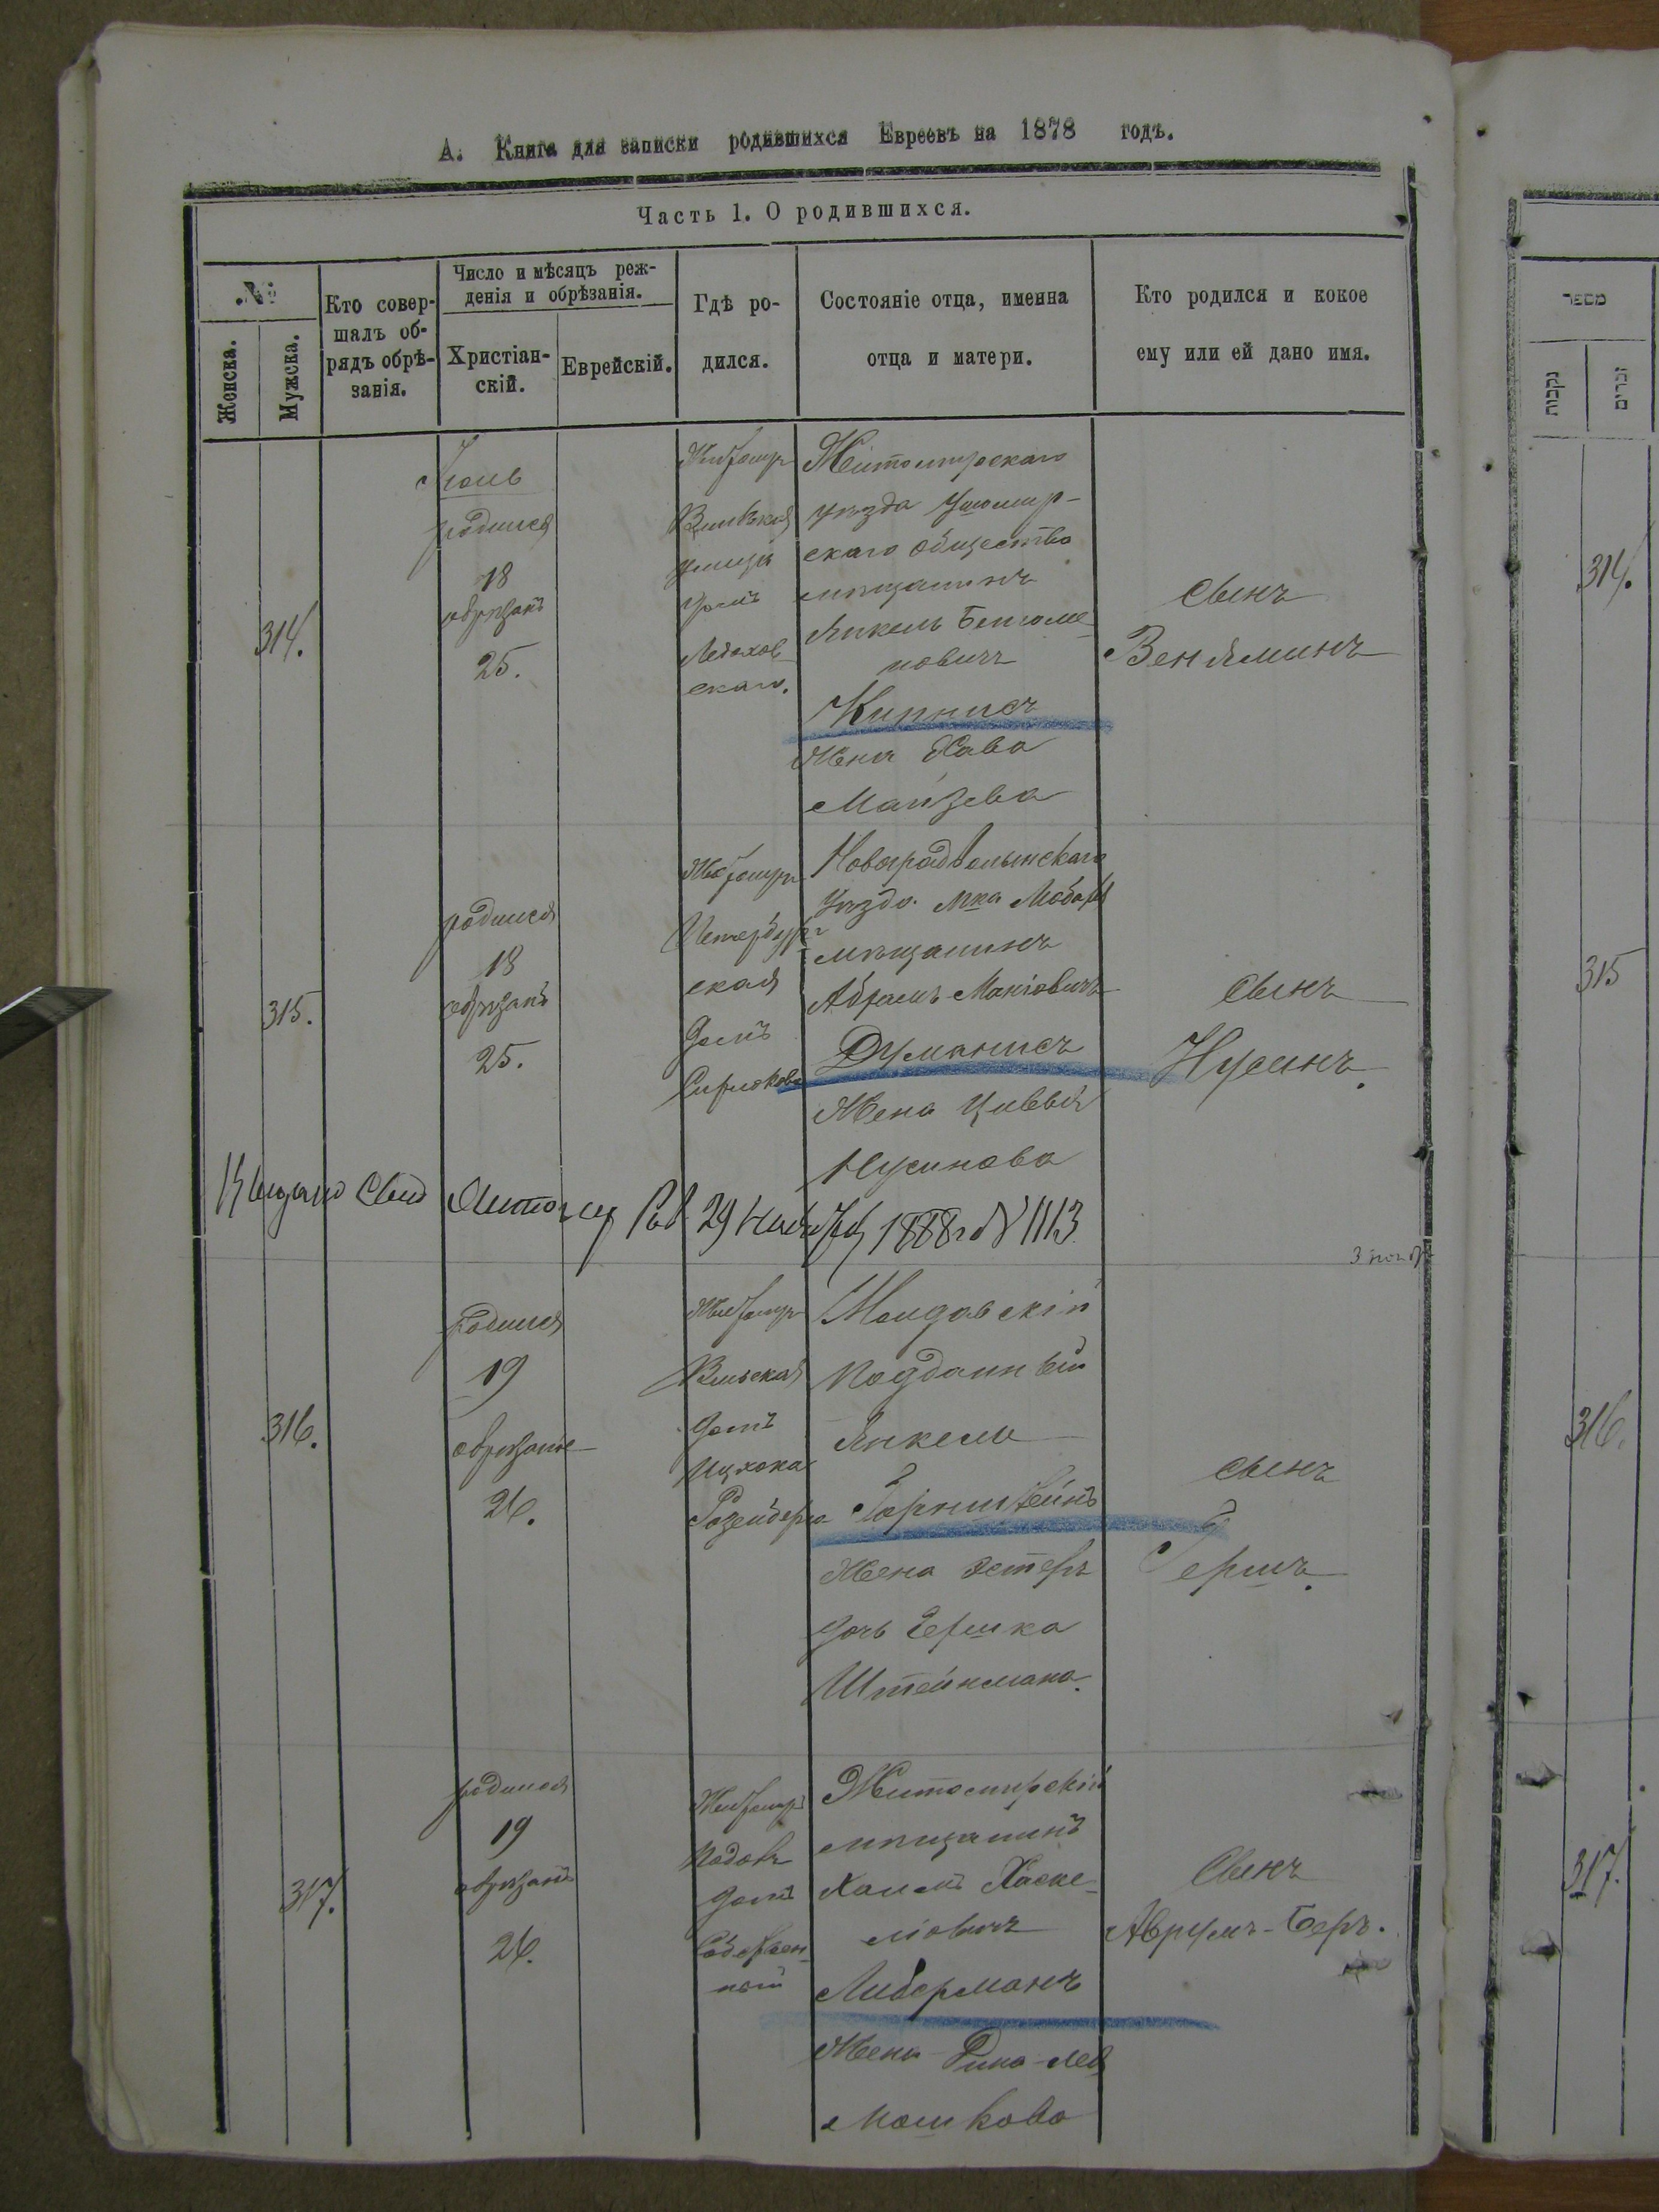 А. Книга для записки родившихся Евреевъ на 1878 годъ.
Часть 1. О родившихся.
№
Женска.
Мужска.
Кто совер-
шалъ об-
рядъ обрѣ-
занія.
Число и мѣсяцъ реж-
денія и обрѣзанія.
Христіан-
скій.
Еврейскій.
Гдѣ ро-
дился.
Состояніе отца, именна
отца и матери.
Кто родился и кокое
ему или ей дано имя.
314.
Іюль
родился
18
обрѣзанъ
25.
Житомир
улица
домъ
скаго.
Житомирскаго
уѣзда Ушомир-
скаго общества
мѣщанинъ
Янкель
новичъ
Кипнисъ
Жена Хава
сынъ
Веньяминъ
315.
родился
18
обрѣзанъ
25.
Житомир
Петербург
ская
домъ
Новоградволынскаго
Уѣзда мка
мѣщанинъ
Абрамъ
Думанисъ
Жена Цивья
Нусинова
сынъ
Нусинъ.
Выдано Свид Житомир Рав 29 Ноября 1888 г № 1113
316.
родился
19
обрѣзанъ
26.
Житомир
Вильская
домъ
Ицхока
Розенберга
Молдавскій
подданный
Янкель
Горнштейнъ
Жена Эстеръ
дочь Гершка
Штейнмана.
сынъ
Гершъ.
317.
родился
19
обрѣзанъ
26.
Житомир
домъ
Собствен-
ный
Житомирскій
мѣщанинъ
Хаимъ Хаске-
львичъ
Либерманъ
Жена Рина-Лея
Мошкова
Сынъ
Аврумъ-Беръ.
מספר
נקבות
זכרים
314.
315
316.
317.